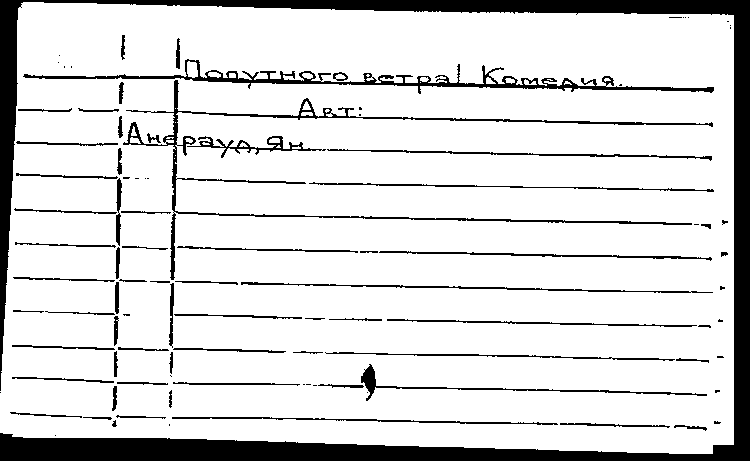 Попутного ветра! Комедия.
Авт:
Анерауд, Ян.